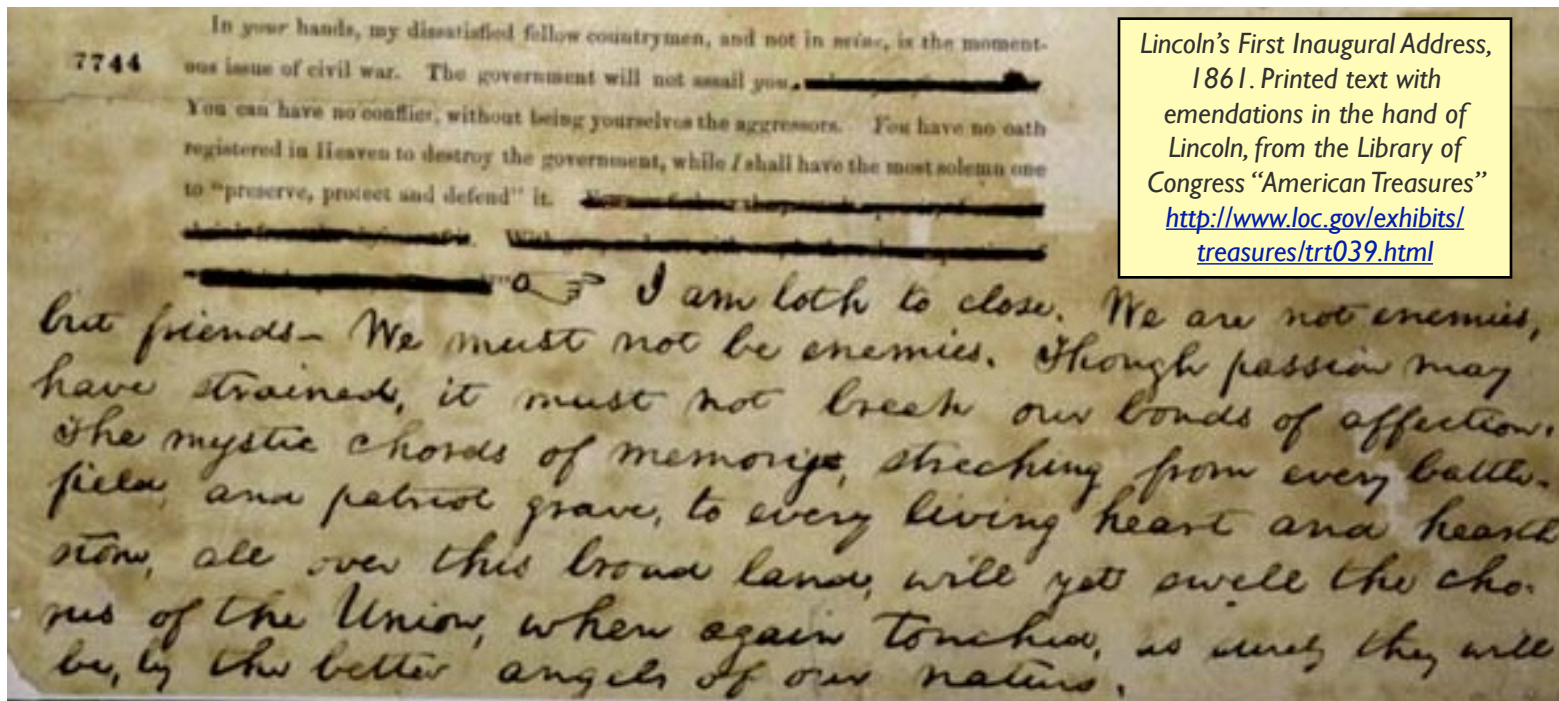 In your hands, my dissatisfied fellow countrymen, and not in mine, is the moment-
7744
ous issue of civil war. The government will not assail you.
You can have no conflict, without being yourselves the aggressors. You have no oath
registered in Heaven to destroy the government, while I shall have the most solemn one
to "preserve, protect and defend" it.
I am loth to close. We are not enemies,
but friends— We must not be enemies. Though passion may
have strained, it must not break our bonds of affection.
The mystic chords of memory, streching from every battle-
field, and patriot grave, to every living heart and hearth
stone, all over this broad land, will yet swell the cho-
rus of the Union, when again touched, as surely they will
be, by the better angels of our nature.
Lincoln's First Inaugural Address,
1861. Printed text with
emendations in the hand of
Lincoln, from the Library of
Congress "American Treasures"
http://www.loc.gov/exhibits/
treasures/trt039.html